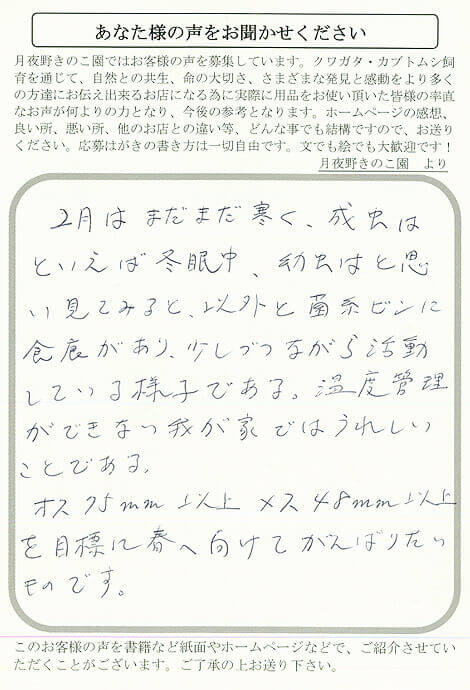 あなた様の声をお聞かせください
月夜野きのこ園ではお客様の声を募集しています。クワガタ・カブトムシ飼
育を通じて、自然との共生、命の大切さ、さまざまな発見と感動をより多く
の方達にお伝え出来るお店になる為に実際に用品をお使い頂いた皆様の率直
なお声が何よりの力となり、今後の参考となります。ホームページの感想、
良い所、悪い所、他のお店との違い等、どんな事でも結構ですので、お送り
ください。応募はがきの書き方は一切自由です。文でも絵でも大歓迎です！
月夜野きのこ園　より
2月はまだまだ寒く、成虫は
といえば冬眠中、幼虫はと思
い見てみると、以外と菌糸ビンに
食痕があり、少しづつながら活動
している様子である。温度管理
ができない我が家ではうれしい
ことである。
オス75mm以上 メス48mm以上
を目標に春へ向けてがんばりたい
ものです。
このお客様の声を書籍など紙面やホームページなどで、ご紹介させてい
ただくことがございます。ご了承の上お送り下さい。